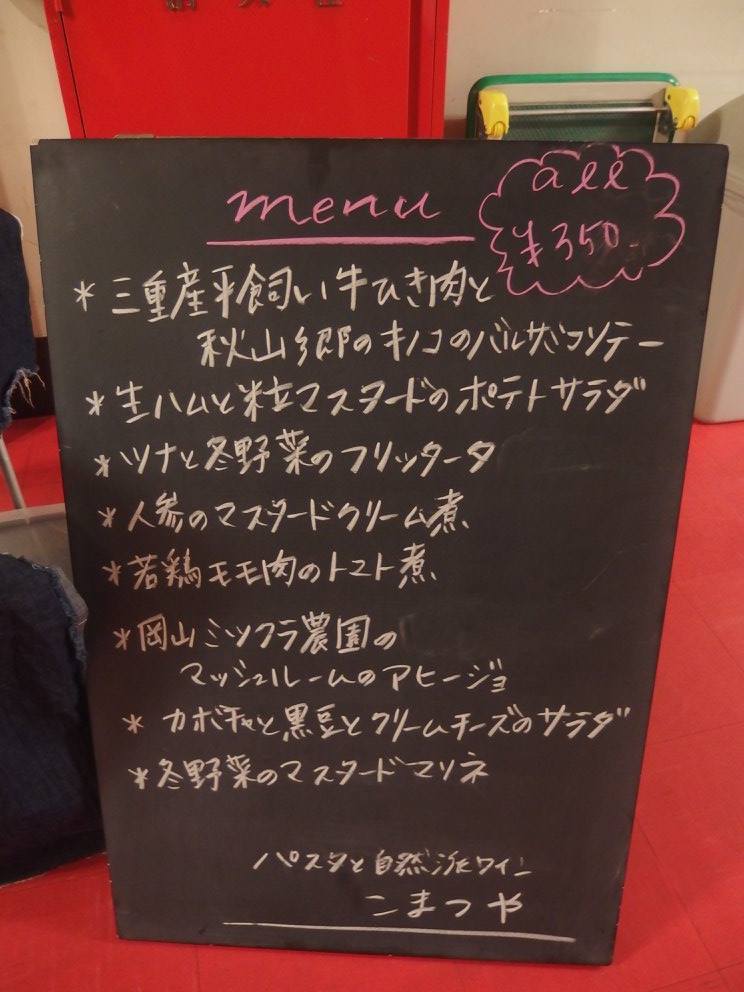 menu
all
¥350
* 三重産平飼い牛ひき肉と
秋山郷のキノコのバルサミコソテー
* 生ハムと粒マスタードのポテトサラダ
* ツナと冬野菜のフリッタータ
* 人参のマスタードクリーム煮
* 若鶏モモ肉のトマト煮
* 岡山ミツクラ農園の
マッシュルームのアヒージョ
* カボチャと黒豆とクリームチーズのサラダ
* 冬野菜のマスタードマリネ
パスタと自然派ワイン
こまつや